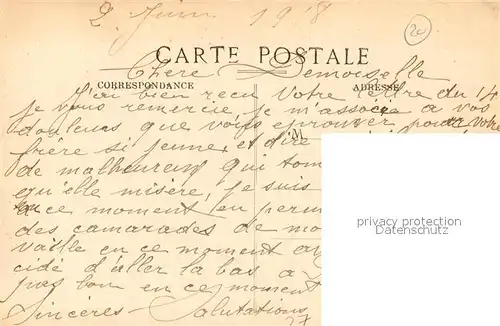 2 Juin 1918
20
CARTE POSTALE
Chère Demoiselle
CORRESPONDANCE ADRESSE
J'ai bien reçu votre lettre du 14
je vous remercie, je m'associe a vos
douleurs que vous eprouver pour votre
M
frère si jeune, et dire
de malheureux qui tom
qu'elle misère, je suis
a ce moment en perm
des camarades de mo
vaille en ce moment au
cidé d'aller la bas a
pas bon en ce moment
Sincères Salutations
27
privacy protection
Datenschutz